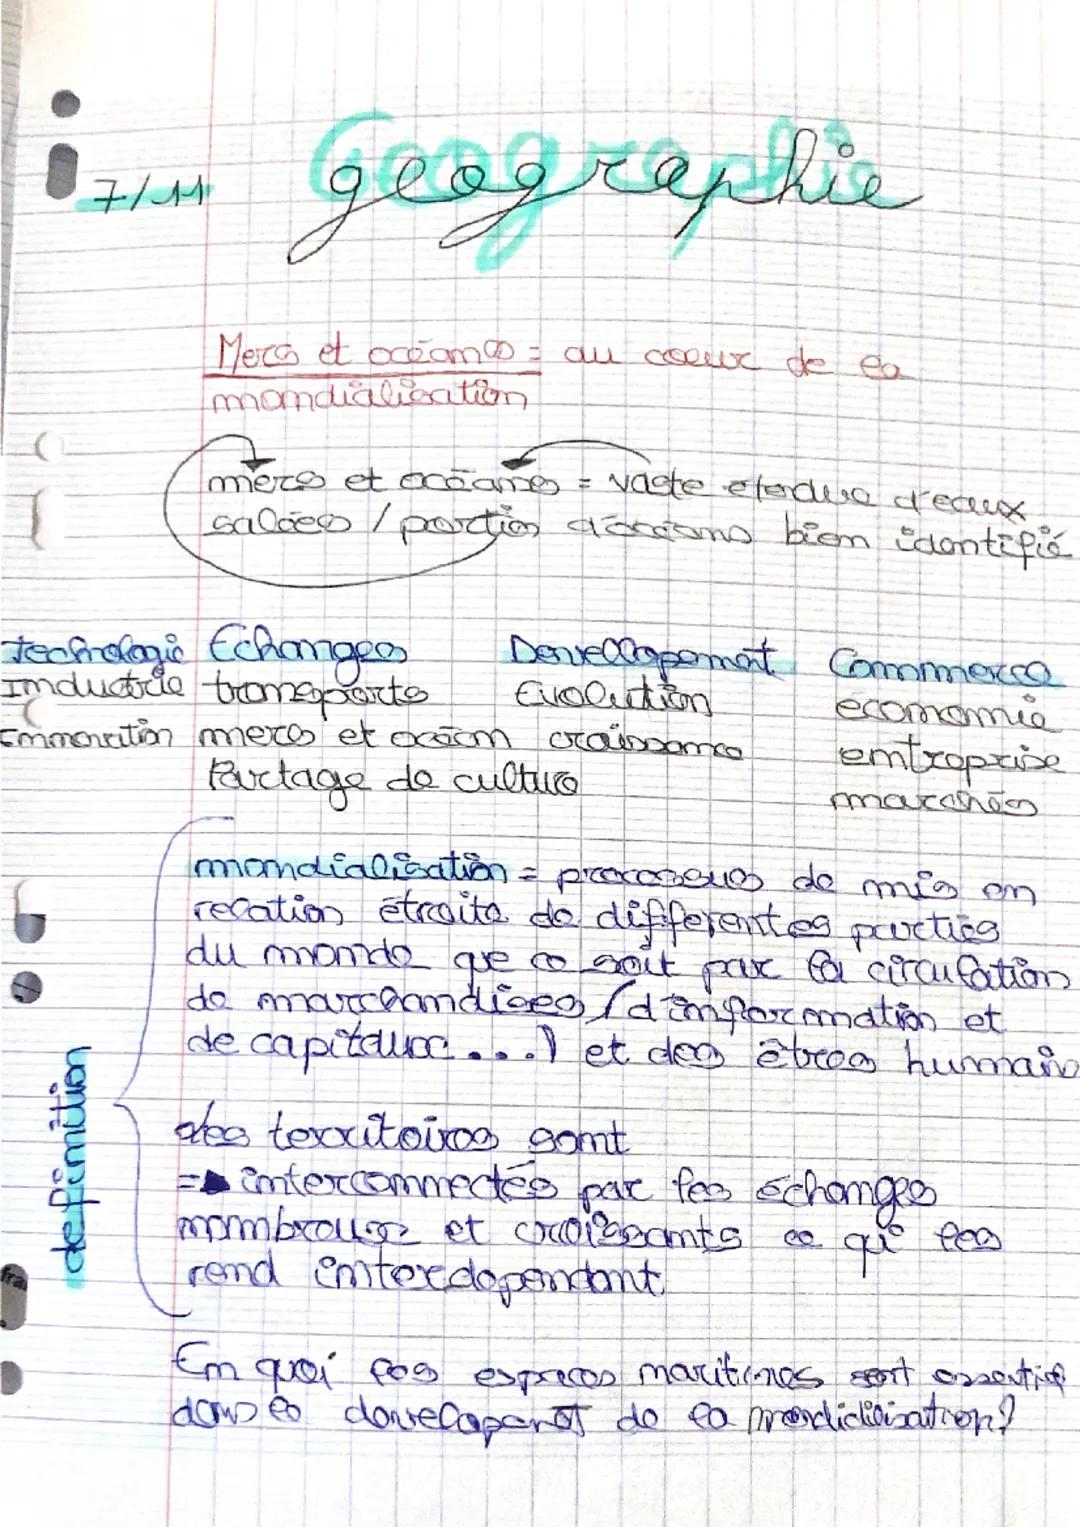 7/11
geographie
Mers et océans = au coeur de la
mondialisation
mers et océans = vaste etendue d'eaux
salées / portion d'océans bien identifié
technologie Echanges Devellopemet Commerce
Industrie transports Evolution economie
mers et océan croissance entreprise
Partage de culture marchés
mondialisation = processus de mis en
relation étroite de différentes parties
du monde que ce soit par la circulation
de marchandises (d'information et
de capitaux ...) et des êtres humains
des territoires sont
=> interconnectés par les échanges
nombreux et croissants ce qui les
rend interdependant
definition
En quoi les espaces maritimes sont essentiel
dans le developpement de la mondialisation?